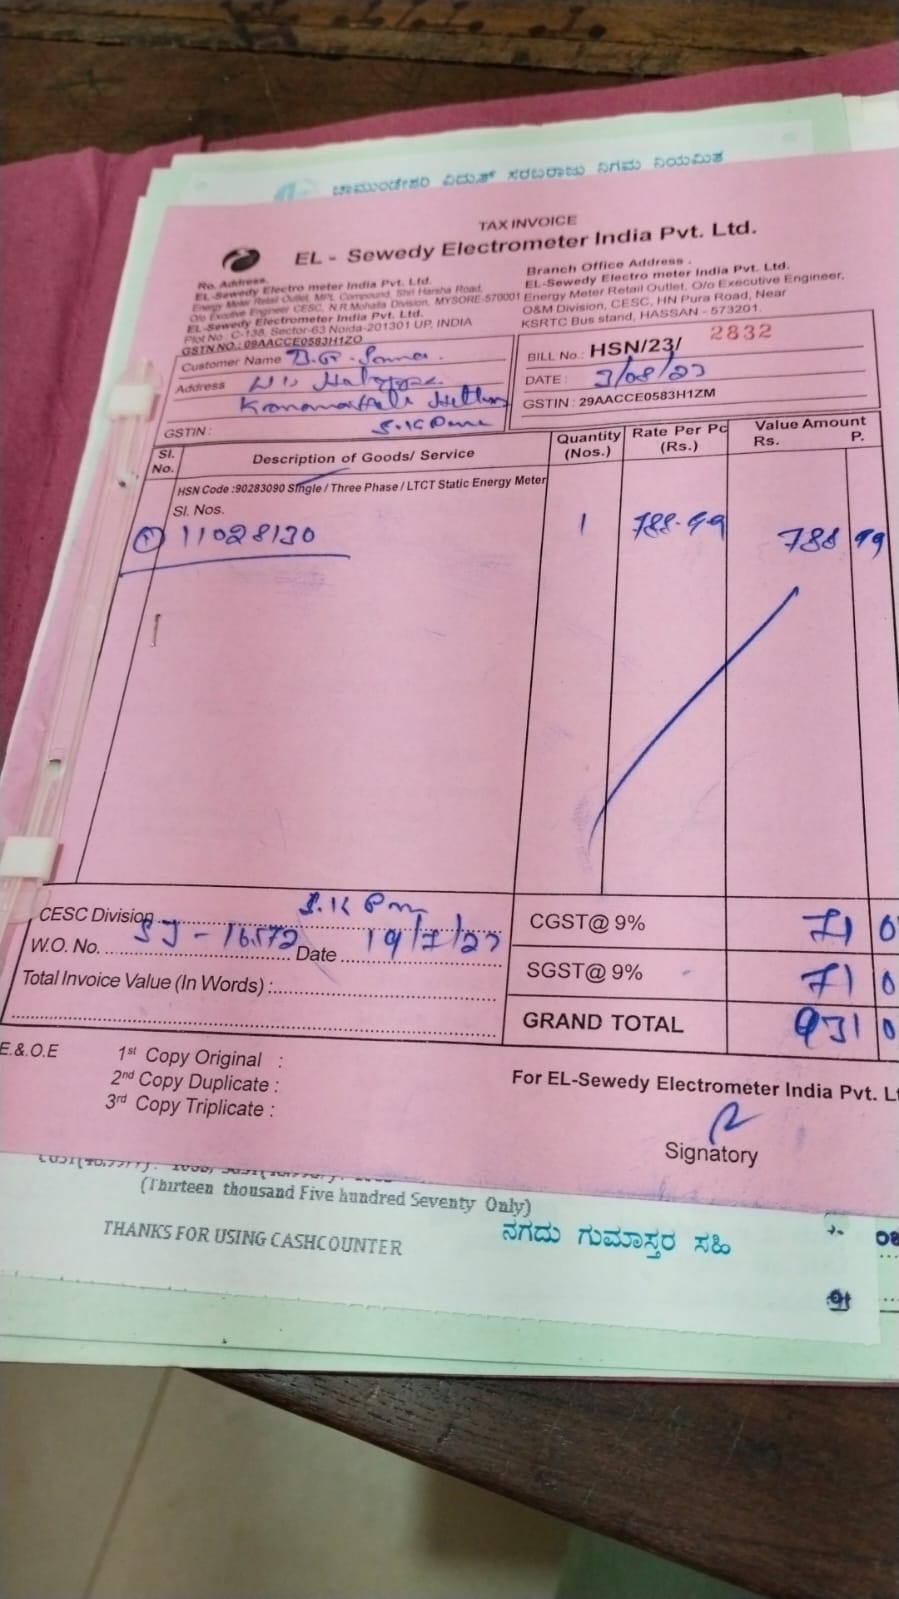 ಚಾಮುಂಡೇಶ್ವರಿ ವಿದ್ಯುತ್ ಸರಬರಾಜು ನಿಗಮ ನಿಯಮಿತ
TAX INVOICE
EL - Sewedy Electrometer India Pvt. Ltd.
Ro. Address.
EL-Sewedy Electro meter India Pvt. Ltd.
Energy Meter Retail Outlet, MPL Compound, Shri Harsha Road,
O/o Executive Engineer CESC, N.R.Mohalla Division, MYSORE-570001
EL-Sewedy Electrometer India Pvt. Ltd.
Plot No : C-138, Sector-63 Noida-201301 UP, INDIA
GSTN NO.: 09AACCE0583H1ZO
Branch Office Address .
EL-Sewedy Electro meter India Pvt. Ltd.
Energy Meter Retail Outlet, O/o Executive Engineer,
O&M Division, CESC, HN Pura Road, Near
KSRTC Bus stand, HASSAN - 573201.
Customer Name
Address
GSTIN :
BILL No.: HSN/23/ 2832
DATE : 3/08/23
GSTIN : 29AACCE0583H1ZM
Sl. No. Description of Goods/ Service Quantity (Nos.) Rate Per Pc (Rs.) Value Amount Rs. P.
HSN Code :90283090 Single / Three Phase / LTCT Static Energy Meter
Sl. Nos.
① 11028130 1 788.99 788 99
CESC Division
W.O. No. SJ - 16572 Date 19/7/23
Total Invoice Value (In Words) :
CGST@ 9% 71 0
SGST@ 9% 71 0
GRAND TOTAL 931 0
E.& O.E
1st Copy Original :
2nd Copy Duplicate :
3rd Copy Triplicate :
For EL-Sewedy Electrometer India Pvt.
Signatory
(Thirteen thousand Five hundred Seventy Only)
THANKS FOR USING CASHCOUNTER
ನಗದು ಗುಮಾಸ್ತರ ಸಹಿ